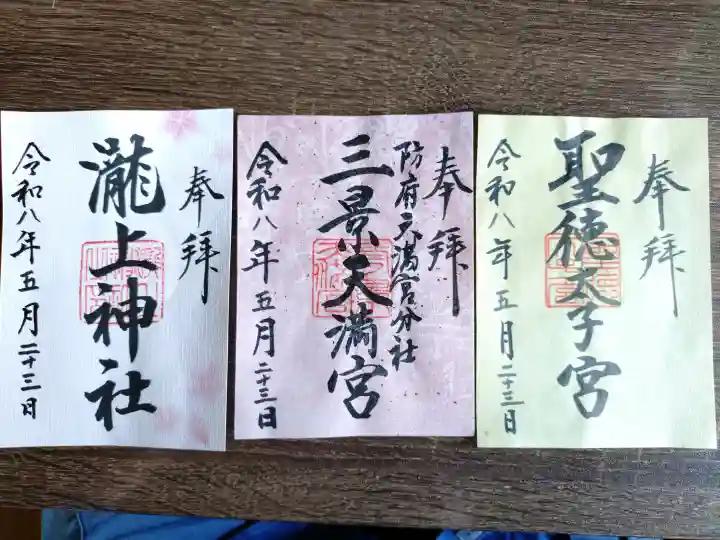 奉拜
瀧上神社
令和八年五月二十三日
奉拜
防府天満宮分社
三景天満宮
令和八年五月二十三日
奉拜
聖徳太子宮
令和八年五月二十三日